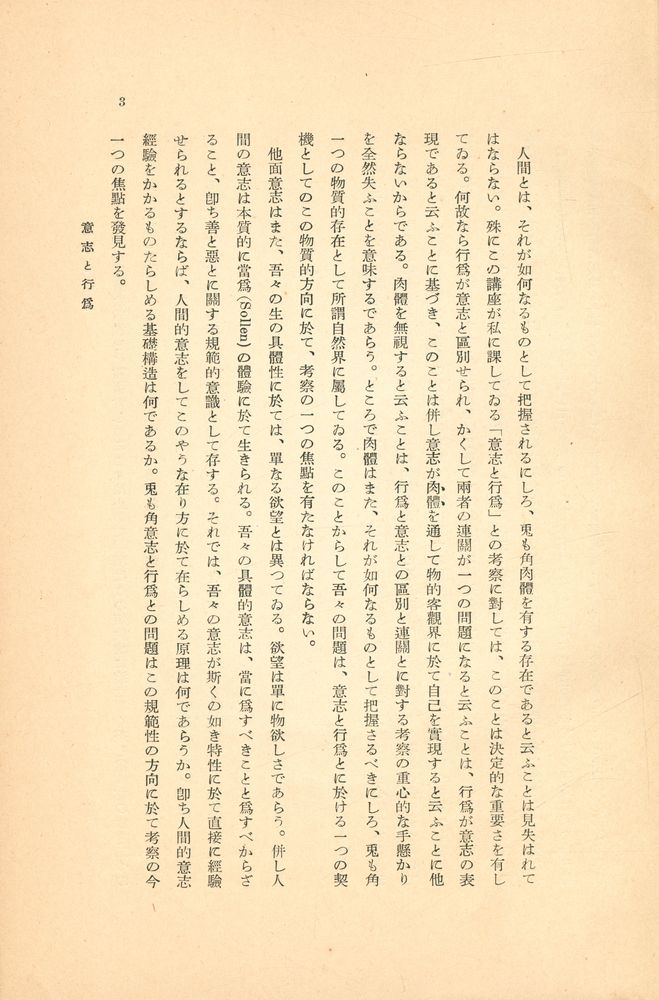 人間とは、それが如何なるものとして把握されるにしろ、兎も角肉體を有する存在であると云ふことは見失はれて
はならない。殊にこの講座が私に課してゐる「意志と行爲」との考察に對しては、このことは決定的な重要さを有し
てゐる。何故なら行爲が意志と區別せられ、かくして兩者の連關が一つの問題になると云ふことは、行爲が意志の表
現であると云ふことに基づき、このことは併し意志が肉體を通して物的客觀界に於て自己を實現すると云ふことに他
ならないからである。肉體を無視すると云ふことは、行爲と意志との區別と連關とに對する考察の重心的な手懸かり
を全然失ふことを意味するであらう。ところで肉體はまた、それが如何なるものとして把握さるべきにしろ、兎も角
一つの物質的存在として所謂自然界に屬してゐる。このことからして吾々の問題は、意志と行爲とに於ける一つの契
機としてのこの物質的方向に於て、考察の一つの焦點を有たなければならない。
他面意志はまた、吾々の生の具體性に於ては、單なる欲望とは異つてゐる。欲望は單に物欲しさであらう。併し人
間の意志は本質的に當爲(Sollen)の體驗に於て生きられる。吾々の具體的意志は、當に爲すべきことと爲すべからざ
ること、卽ち善と惡とに關する規範的意識として存する。それでは、吾々の意志が斯くの如き特性に於て直接に經驗
せられるとするならば、人間的意志をしてこのやうな在り方に於て在らしめる原理は何であらうか。卽ち人間的意志
經驗をかかるものたらしめる基礎構造は何であるか。兎も角意志と行爲との問題はこの規範性の方向に於て考察の今
一つの焦點を發見する。
意志と行爲
3